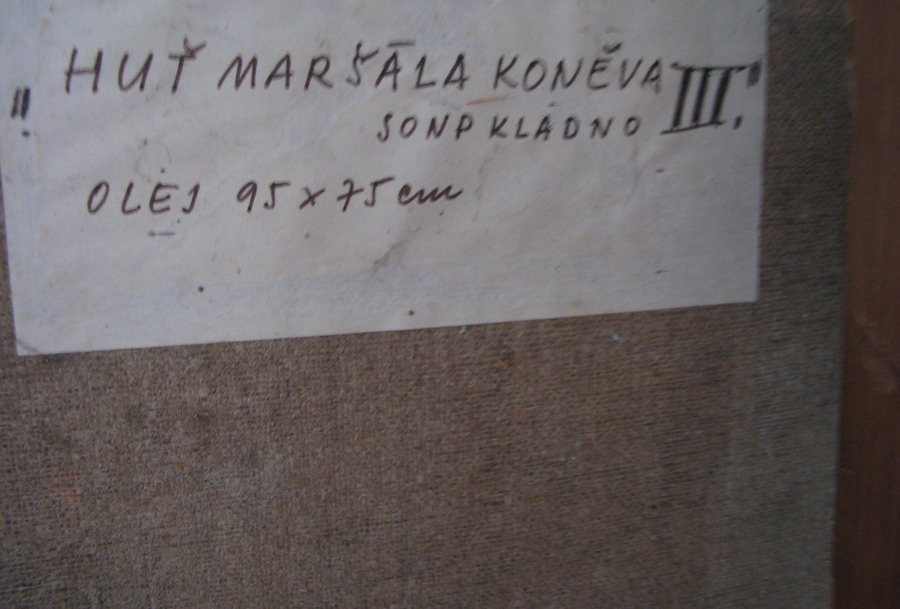 "HUŤ MARŠÁLA KONĚVA III."
SONP KLADNO
OLEJ 95 x 75 cm